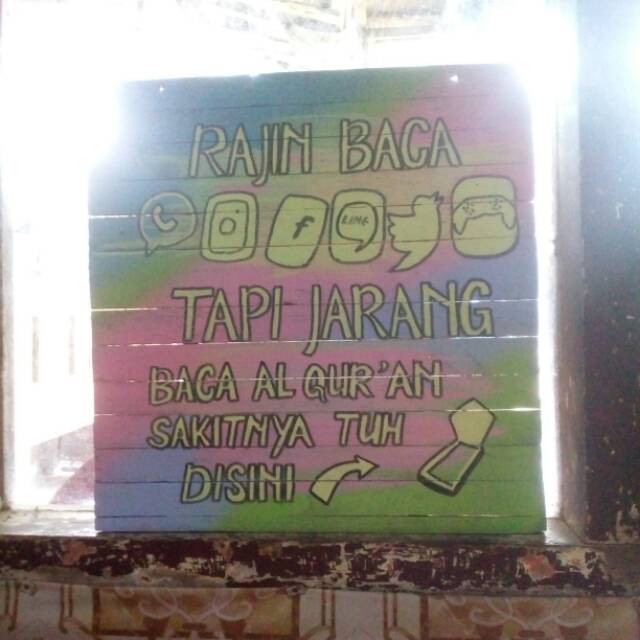 RAJIN BACA
LINE
TAPI JARANG
BACA AL QUR'AN
SAKITNYA TUH
DISINI